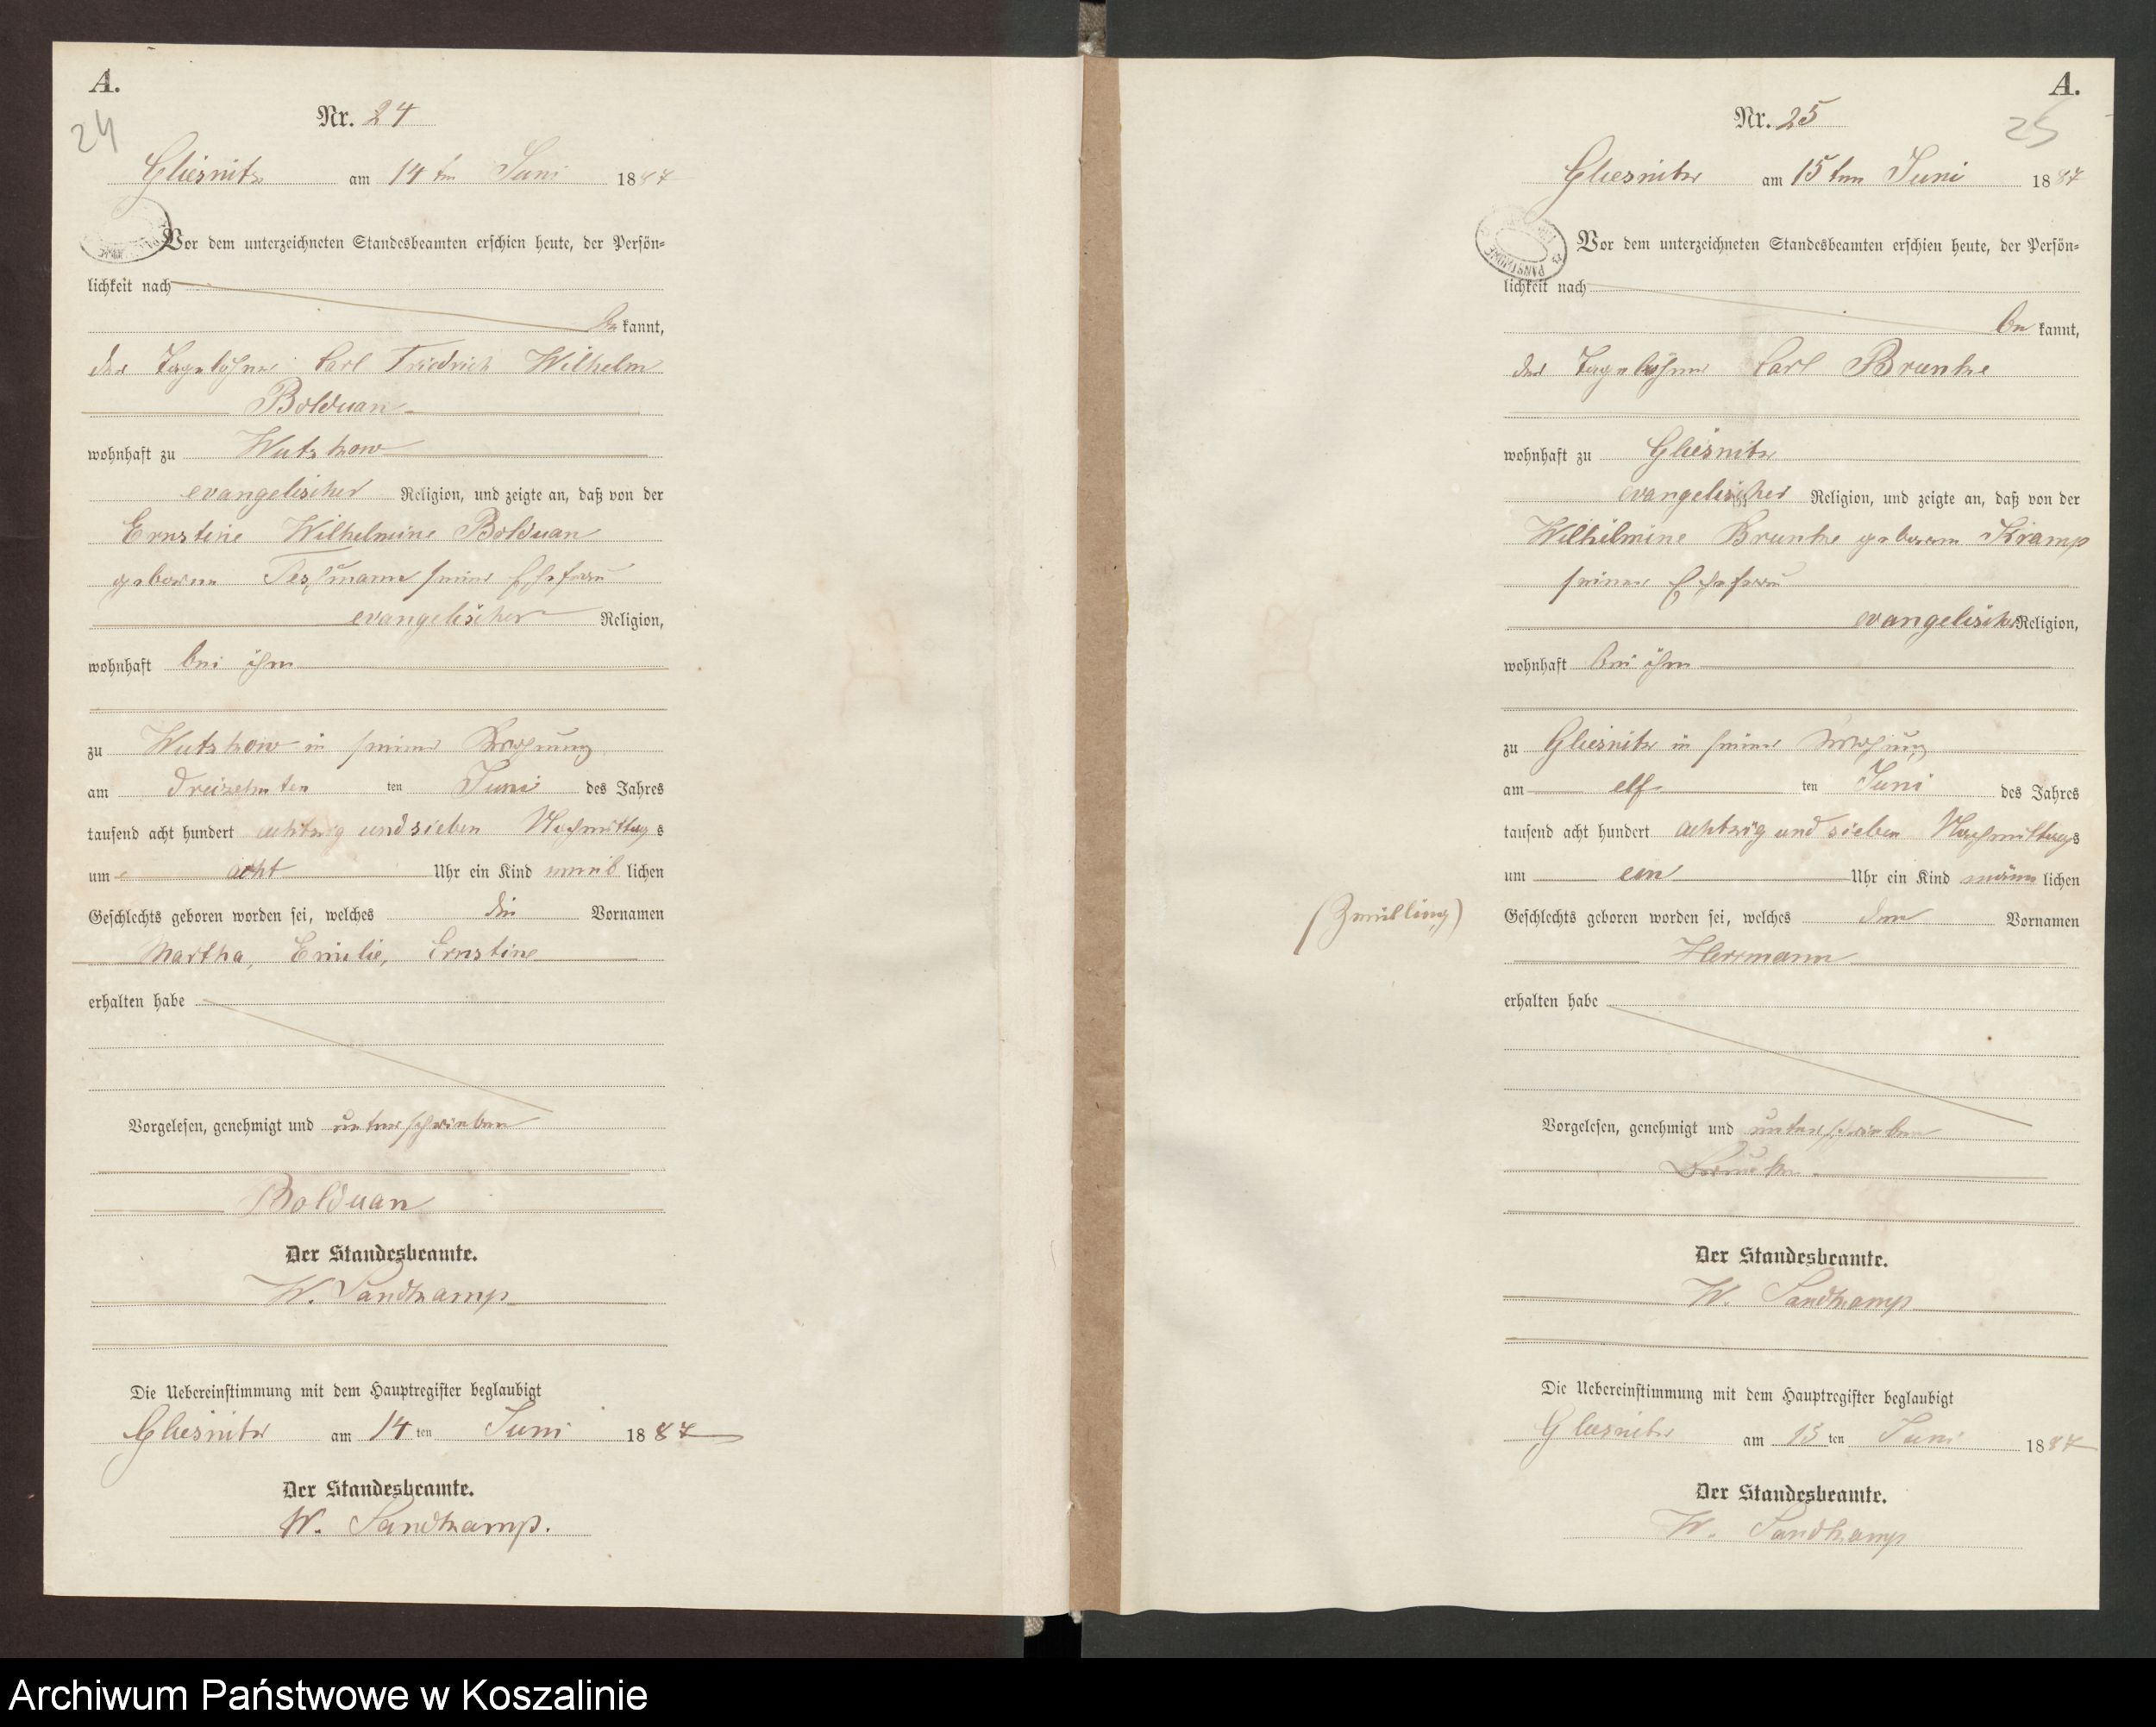 A.
24
Nr. 24
Gliesnitz am 14ten Juni 1887
Vor dem unterzeichneten Standesbeamten erschien heute, der Persön-
lichkeit nach
be kannt,
der Tagelöhner Carl Friedrich Wilhelm
Bolduan
wohnhaft zu Wutzkow
evangelischer Religion, und zeigte an, daß von der
Ernstine Wilhelmine Bolduan
geborenen Teszmann seiner Ehefrau
evangelischer Religion,
wohnhaft bei ihm
zu Wutzkow in seiner Wohnung
am dreizehnten ten Juni des Jahres
tausend acht hundert achtzig und sieben Nachmittags
um acht Uhr ein Kind weib lichen
Geschlechts geboren worden sei, welches die Vornamen
Martha, Emilie, Ernstine
erhalten habe
Vorgelesen, genehmigt und unterschrieben
Bolduan
Der Standesbeamte.
W. Sandkamp
Die Uebereinstimmung mit dem Hauptregister beglaubigt
Gliesnitz am 14 ten Juni 1887
Der Standesbeamte.
W. Sandkamp.
A.
25
Nr. 25
Gliesnitz am 15ten Juni 1887
Vor dem unterzeichneten Standesbeamten erschien heute, der Persön-
lichkeit nach
be kannt,
der Tagelöhner Carl Brunke
wohnhaft zu Gliesnitz
evangelischer Religion, und zeigte an, daß von der
Wilhelmine Brunke geborenen Kramp
seiner Ehefrau
evangelischer Religion,
wohnhaft bei ihm
zu Gliesnitz in seiner Wohnung
am elf ten Juni des Jahres
tausend acht hundert achtzig und sieben Nachmittags
um ein Uhr ein Kind männ lichen
(Zwilling)
Geschlechts geboren worden sei, welches den Vornamen
Herrmann
erhalten habe
Vorgelesen, genehmigt und unterschrieben
Brunke.
Der Standesbeamte.
W. Sandkamp
Die Uebereinstimmung mit dem Hauptregister beglaubigt
Gliesnitz am 15 ten Juni 1887
Der Standesbeamte.
W. Sandkamp
Archiwum Państwowe w Koszalinie